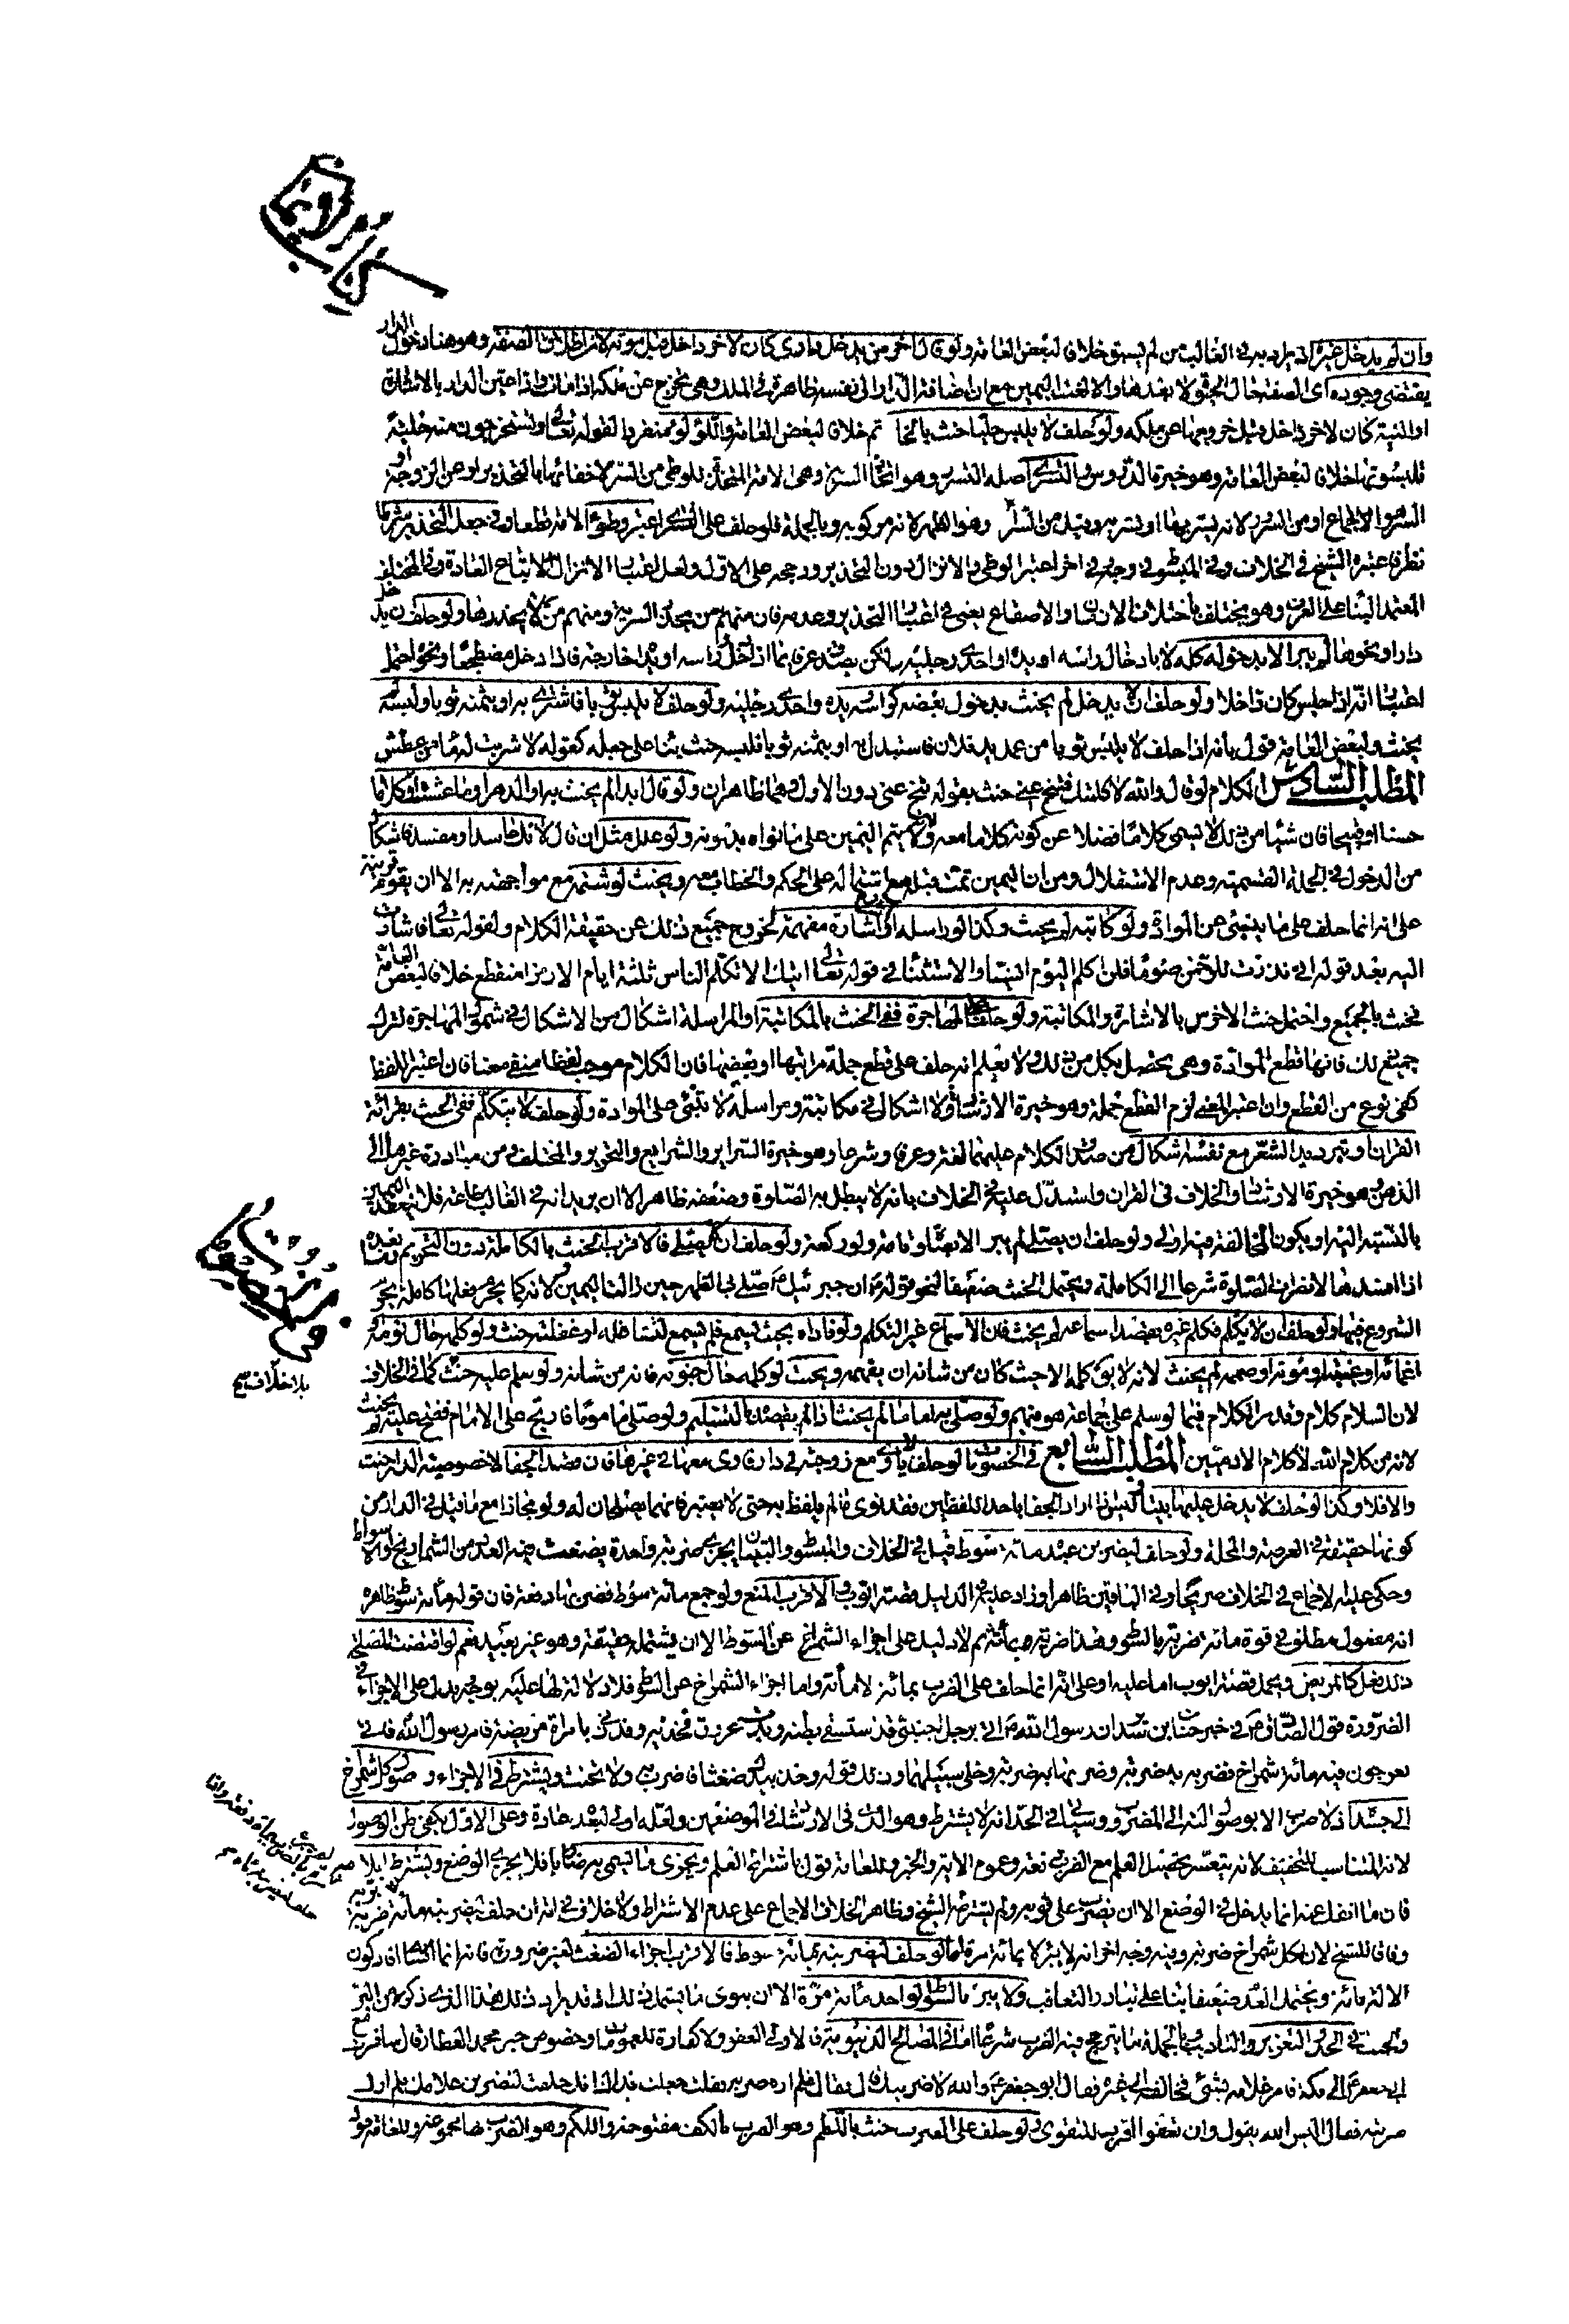 وان لم يدخل غيره اذ يراد به في الغالب من لم يسبق خلافا لبعض العامة ولو قال آخر من يدخل داري كان لآخر داخل قبل موته لان اطلاق الصفة وهو هنا دخول الدار
يقتضي وجوده اي الصفة حال الحيوة لا بعدها والا لغت اليمين مع ان اضافة الدار الى نفسه ظاهرة في الملك وهي تخرج عن ملكه اذا مات واذا عين الدار بالاشارة
او النية كان لآخر داخل قبل خروجها عن ملكه ولو حلف لا يلبس حليا حنث بالخاتم خلافا لبعض العامة واللؤلؤ منفردا لقوله تعالى وتستخرجون منه حلية
تلبسونها خلافا لبعض العامة وهو خيرة الدروس والتسري اصله التسرر وهو اتخاذ السرية وهي الامة المتخذة للوطي من السر لاخفائها بالتخدير او عن الزوجة او
السر هو الجماع او من السرور لانه يسر بها او تسر به وقيل من السرا وهو الظهر لانه مركوبه وبالجملة فلو حلف على التسري اعتبر وطئ الامة قطعا وفي جعل التخدير شرطا
نظر فاعتبره الشيخ في الخلاف وفي المبسوط في وجه وفي آخر اعتبر الوطي والانزال دون التخدير ورجحه على الاول ولعل اعتبار الانزال لاتباع العادة وفي المختلف
المعتمد البناء على العرف وهو يختلف باختلاف الازمان والاصقاع يعني في اعتبار التخدير وعدمه فان منهم من يخدر السرية ومنهم من لا يخدرها ولو حلف ان يدخل
دارا او نحوها لم يبر الا بدخوله كله لا بادخال رأسه او يده او احدى رجليه ولكن يصدق عرفا اذا دخل رأسه او يده خارجة فاذا دخل مضطجعا ونحو احتمل
اعتبار انه اذا جلس كان داخلا ولو حلف ان لا يدخل لم يحنث بدخول بعضه كرأسه يده واحدى رجليه ولو حلف لا يلبس ثوبا فاشترى به او بثمنه ثوبا ولبسه لم
يحنث ولبعض العامة قول بانه اذا حلف لا يلبس ثوبا من عمد يد فلان فاستبدل به او بثمنه ثوبا فلبسه حنث بناء على جعله كقوله لا شربت له ماء من عطش
المطلب السادس في الكلام لو قال والله لا كلمتك فتنح عني حنث بقوله تنح عني دون الاول وهما ظاهران ولو قال ابدا لم يحنث به او الدهر او ما عشت او كلاما
حسنا او قبيحا فان شيئا من ذلك لا يسمى كلاما فضلا عن كونه كلاما معه ولانه لا يتم اليمين على ما نواه بدونه ولو علل مثل ان قال لانك حاسد او مفسد فاشكال
من الدخول في الجملة القسمية وعدم الاستقلال ومن ان اليمين تمت قبله مع اشتماله على الحكم والخطاب معه ويحنث لو شتمه مع مواجهته به الا ان يقوم قرينة
على انه انما حلف على ما ينبئ عن الموادة ولو كاتبه لم يحنث وكذا لو راسله او اشار اشارة مفهمة لخروج جميع ذلك عن حقيقة الكلام ولقوله تعالى فاشارت
اليه بعد قوله اني نذرت للرحمن صوما فلن اكلم اليوم انسيا والاستثناء في قوله تعالى آيتك الا تكلم الناس ثلثة ايام الا رمزا منقطع خلافا لبعض العامة
فحنث بالجميع واحتمل حنث الاخرس بالاشارة والمكاتبة ولو حلف على المهاجرة ففي الحنث بالمكاتبة او المراسلة اشكال من الاشكال في شمول المهاجرة لترك
جميع ذلك فانها قطع الموادة وهي يحصل بكل من ذلك ولا يعلم انه حلف على قطع جملة مراتبها او بعضها فان الكلام موجب لفظا منفي معنا فان اعتبر اللفظ
كفى نوع من القطع وان اعتبر المعنى لزم القطع جملة وهو خيرة الارشاد ولا اشكال في مكاتبة ومراسلة لا تنبئ على الموادة ولو حلف لا يتكلم ففي الحنث بقرائة
القرآن او ترديد الشعر مع نفسه اشكال من صدق الكلام عليهما لغة وعرفا وشرعا وهو خيرة السرائر والشرايع والتحرير والمختلف ومن مبادرة غيرهما الى
الذهن وهو خيرة الارشاد والخلاف في القرآن واستدل عليه في الخلاف بانه لا يبطل به الصلوة وضعفه ظاهر الا ان يريد انه في الغالب طاعة فلا ينعقد اليمين
بالنسبة اليه او يكون المخالفة فيه اولى ولو حلف ان يصلي لم يبر الا بصلوة تامة ولو ركعة ولو حلف ان لا يصلي فالاقرب الحنث بالكاملة دون التحريم بعده
اذا افسدها لانصراف الصلوة شرعا الى الكاملة ويحتمل الحنث ضعيفا لنحو قوله ان جبرئيل صلى بي الظهر حين زالت اليمين ولانه كما يحرم فعلها كاملة يحرم
الشروع فيها ولو حلف ان لا يكلمه فكلم غيره بقصد اسماعه لم يحنث فان الاسماع غير التكلم ولو ناداه بحيث يسمع فلم يسمع لتشاغله او غفلته حنث ولو كلمه حال نومه او
اغمائه او غيبته او موته او صممه لم يحنث لانه لا يق كلمه الا حيث كان من شانه ان يفهمه ويحنث لو كلمه حال جنونه فانه من شانه ولو سلم عليه حنث كما في الخلاف
لان السلام كلام وقد مر الكلام فيما لو سلم على جماعة هو منهم ولو صلى به اماما لم يحنث اذا لم يقصده بالتسليم ولو صلى مأموما فارتج على الامام ففتح عليه لم يحنث
لانه من كلام الله لا كلام الادميين المطلب السابع في الخصومات لو حلف لا يأوي مع زوجته في دار فآوى معها في غيرها فان قصد الجفا لا خصوصية الدار حنث
والا فلا وكذا لو حلف لا يدخل عليها بيتا وليس اذا اراد الجفا باحد اللفظين فقد نوى ما لم يلفظ به حتى لا يعتبر فانهما يصلحان له ولو مجازا مع ما قيل في الدار من
كونها حقيقة في العرصة والمحلة ولو حلف ليضربن عبده مائة سوط قيل في الخلاف والمبسوط والتبيان يجزي ضربة واحدة بضغث فيه العدد من الشماريخ او الاسواط
وحكى عليه الاجماع في الخلاف صريحا وفي الباقين ظاهرا وزاد عليه في الدليل قصة ايوب والاقرب المنع ولو جمع مائة سوط فضربه بها دفعة فان قوله مائة سوط ظاهره
انه مفعول مطلق في قوة مائة ضربة بالسوط وهذا ضربة بمائة ثم لا دليل على اجزاء الشماريخ عن السوط الا ان يشتمله حقيقة وهو غير بعيد نعم لو اقتضت المصلحة
ذلك فعل كالمريض ويحمل قصة ايوب اما عليه او على انه انما حلف على الضرب بمائة لا مائة واما اجزاء الشماريخ عن السوط فلا دلالة لها عليه بوجه يدل على الاجزاء في
الضرورة قول الصادق في خبر حنان بن سدير ان رسول الله اتي برجل احبن قد استسقى بطنه وبدت عروق فخذيه وقد زنى بامرأة مريضة فامر رسول الله فاتي
بعرجون فيه مائة شمراخ فضربه به ضربة وضربها به ضربة وخلى سبيلهما وذلك قوله وخذ بيدك ضغثا فاضرب به ولا تحنث ويشترط في الاجزاء وصول كل شمراخ
الى جسده اذ لا ضرب الا بوصول الة الى المضروب وسيأتي في الحد انه لا يشترط وهو الذي في الارشاد في الموضعين ولعله اولى لبعده عادة وعلى الاول يكفي ظن الوصول
لانه المناسب للتخفيف لانه يتعسر تحصيل العلم مع الضرب دفعة وعموم الاية والخبر وللعامة قول باشتراط العلم ويجزي ما يسمى به ضاربا فلا يجزي الوضع ويشترط ايلامه
فان ما انفل عنه انما يدخل في الوضع الا ان يضرب على ثوبه ولم يشترطه الشيخ وظاهر الخلاف الاجماع على عدم الاشتراط ولا خلاف في انه ان حلف ليضربنه مائة ضربة
وفاقا للشيخ لان لكل شمراخ ضربة وفيه وجه آخر انه لا يبر الا بمائة مرة اما لو حلف ليضربنه بمائة سوط فالاقرب اجزاء الضغث لغير ضرورة فانه انما افاد كون
الالة مائة ويحتمل العدد ضعيفا بناء على تبادر التعاقب ولا يبر بالسوط الواحد مائة مرة الا ان ينوي ما يشمل ذلك اذ قد يراد ذلك هذا الذي ذكر من البر
والحنث في الحد والتعزير والتأديب وبالجملة ما يترجح فيه الضرب شرعا اما في المصالح الدنيوية فالاولى العفو ولا كفارة للعمومات وخصوص خبر محمد العطار قال سافرت مع
ابي جعفر الى مكة فامر غلامه بشئ فخالفه الى غيره فقال ابو جعفر والله لاضربنك قال فلم اره ضربه فقلت جعلت فداك انك حلفت لتضربن غلامك فلم ارك
ضربته فقال اليس الله يقول وان تعفوا اقرب للتقوى ولو حلف على الضرب حنث باللطم وهو الضرب بالكف مفتوحة واللكم وهو الضرب بها مجموعة وللعامة قول
بلا خلاف صح